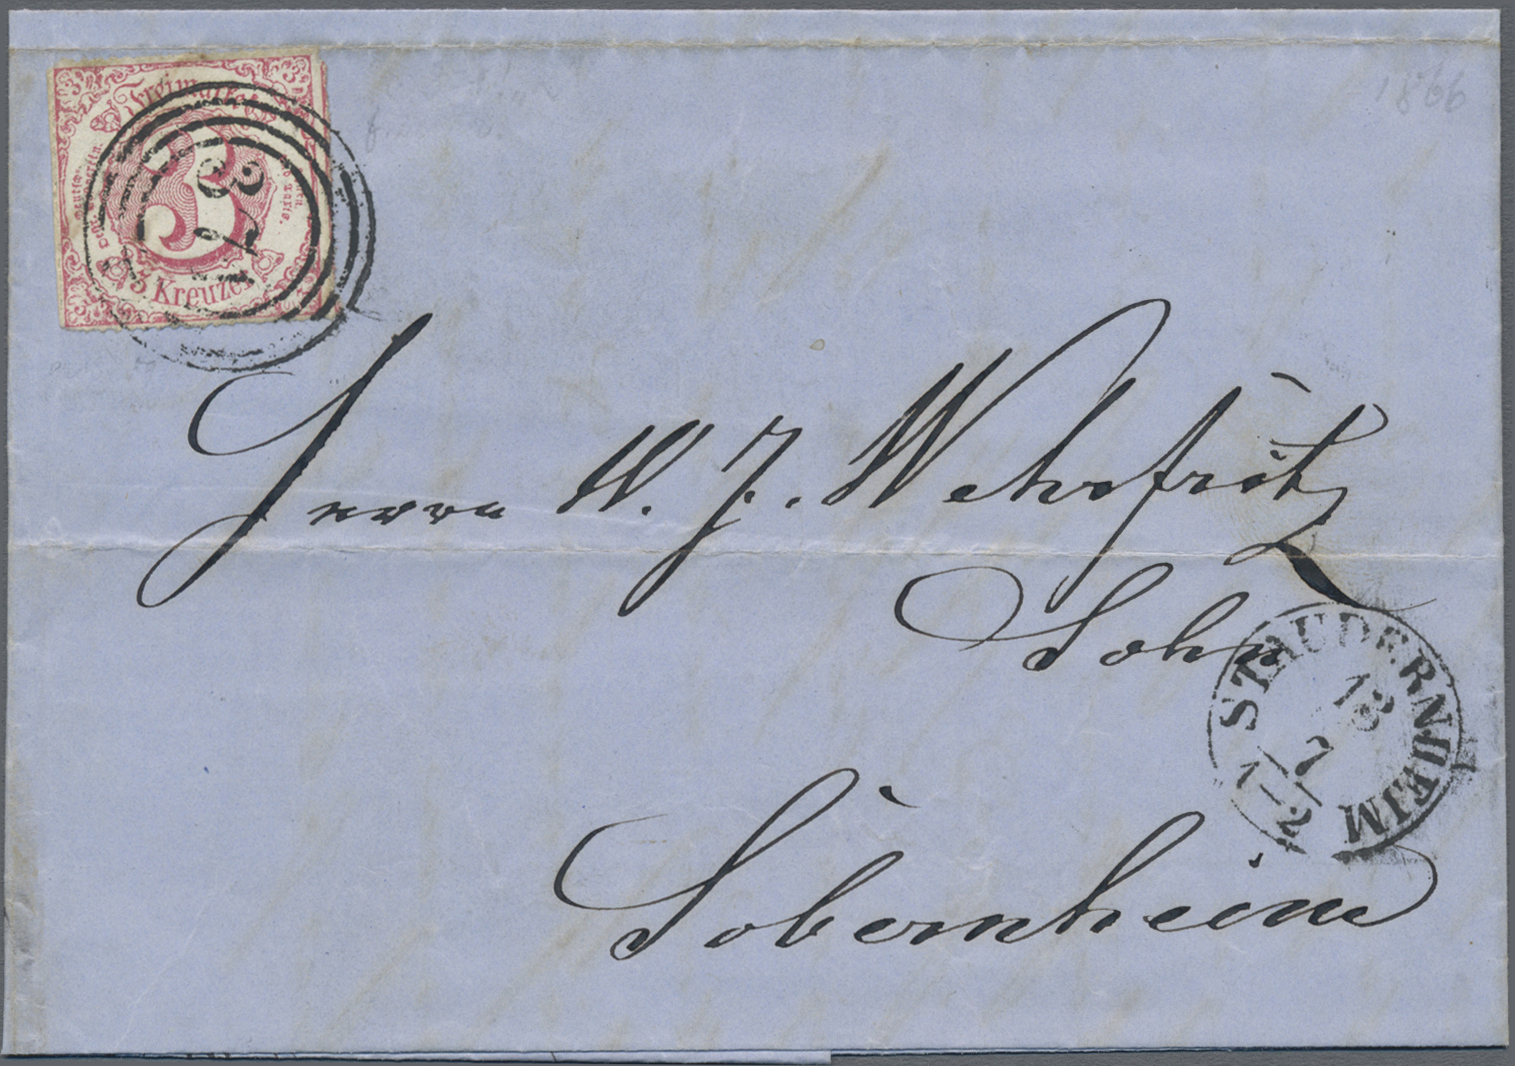 1866
Freimarke
3
3 Kreuzer
Herrn W. J. Wehrfritz
Sohn
STAUDERNHEIM
18
7
1-2
Sobernheim